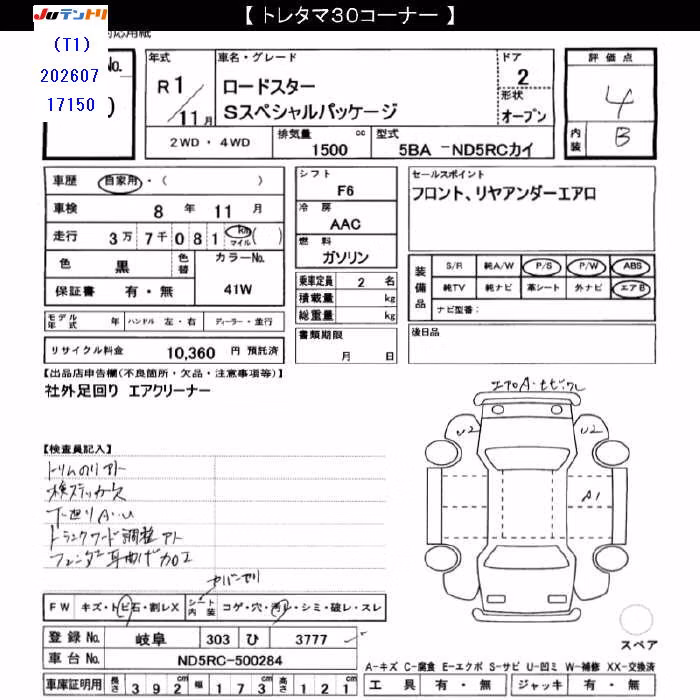 【 トレタマ30コーナー 】
JUテントリ
対応用紙
(T1)
202607
17150
No.
年式
車名・グレード
ドア
評価点
R1/11月
ロードスター
Sスペシャルパッケージ
2
形状
オープン
4
内装
B
2WD・4WD
排気量
1500
cc
型式
5BA -ND5RCカイ
車歴
自家用・( )
シフト
F6
セールスポイント
フロント、リヤアンダーエアロ
車検
8 年 11 月
冷房
AAC
走行
3万 7千 0 8 1 km マイル ( )
燃料
ガソリン
色
黒
色替
カラーNo.
41W
保証書
有・無
乗車定員
2 名
積載量
kg
総重量
kg
装備品
S/R
純A/W
P/S
P/W
ABS
純TV
純ナビ
革シート
外ナビ
エアB
ナビ型番:
モデル年式
年
ハンドル
左・右
ディーラー・並行
書類期限
月 日
後日品
リサイクル料金
10,360 円 預託済
【出品店申告欄(不良箇所・欠品・注意事項等)】
社外足回り エアクリーナー
【検査員記入】
トリムのリアト
検ステッカー欠
下廻りA・U
トランクフード調整アト
フェンダー耳曲げ加工
エアロA・ヒビワレ
U2
U2
A1
FW
キズ・トビ石・割レX
シート内装
コゲ・穴・汚レ・シミ・破レ・スレ
登録 No.
岐阜
303
ひ
3777
スペア
車台 No.
ND5RC-500284
A-キズ C-腐食 E-エクボ S-サビ U-凹ミ W-補修 XX-交換済
車庫証明用
長さ
392cm
幅
173cm
高さ
121cm
工具
有・無
ジャッキ
有・無